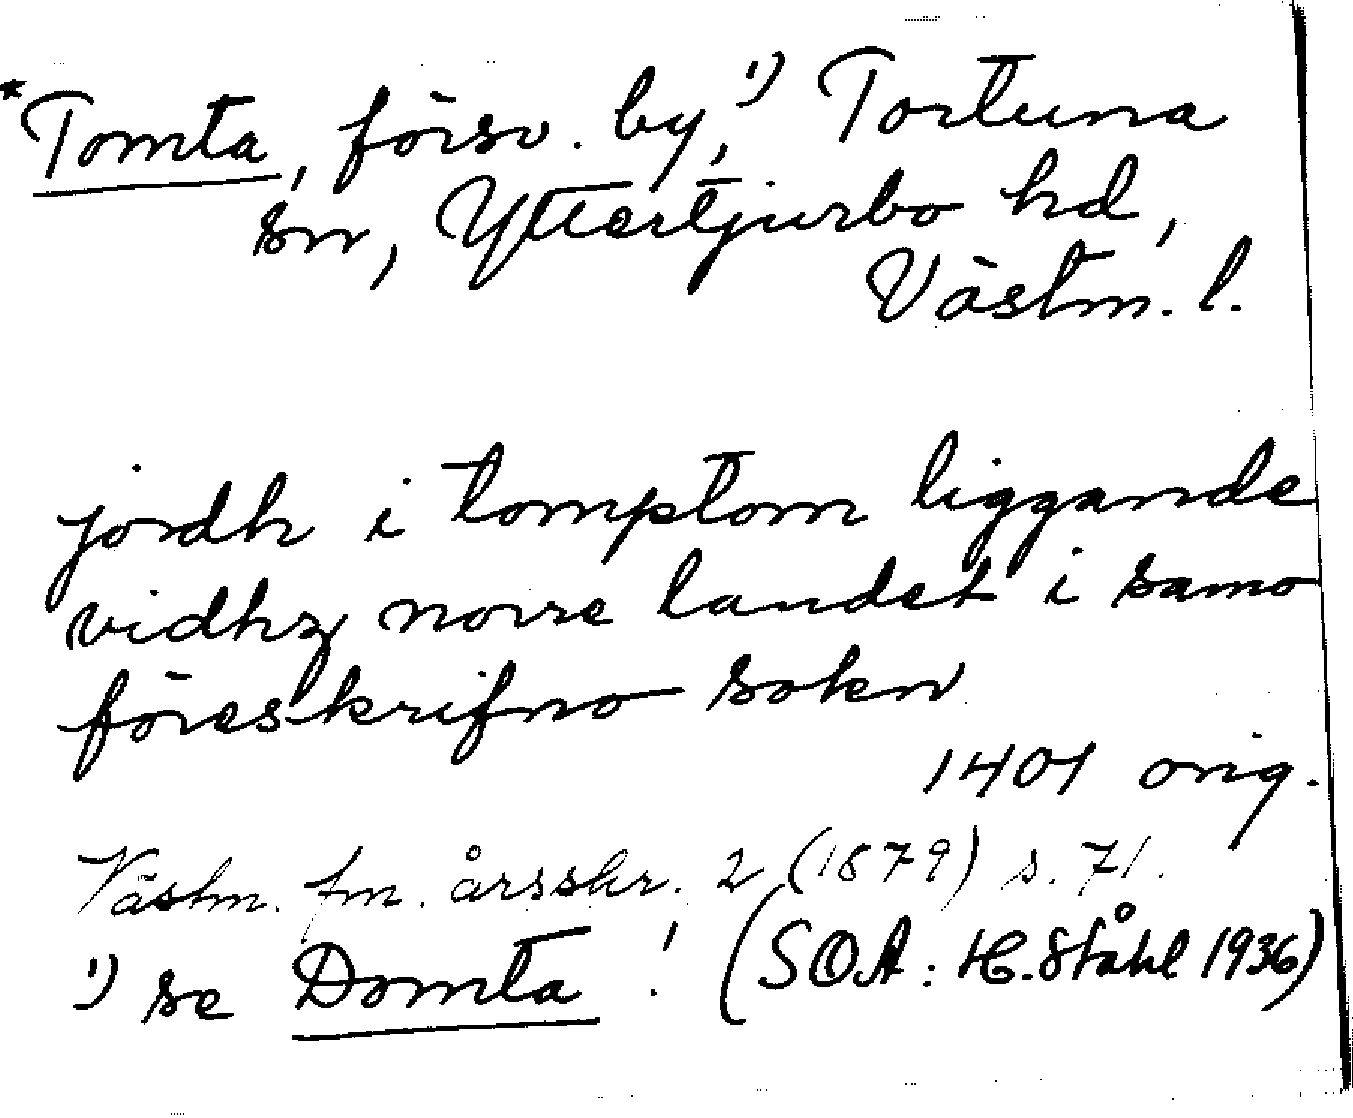 *Tomta, försv. by,¹) Tortuna
sn, Yttertjurbo hd,
Västm. l.
jordh i tomptom liggande
vidhz norre landet i samo
föreskrifno sokn
1401 orig.
Västm. fm. årsskr. 2 (1879) s. 71.
¹) se Domta! (SOA: H. Ståhl 1936)